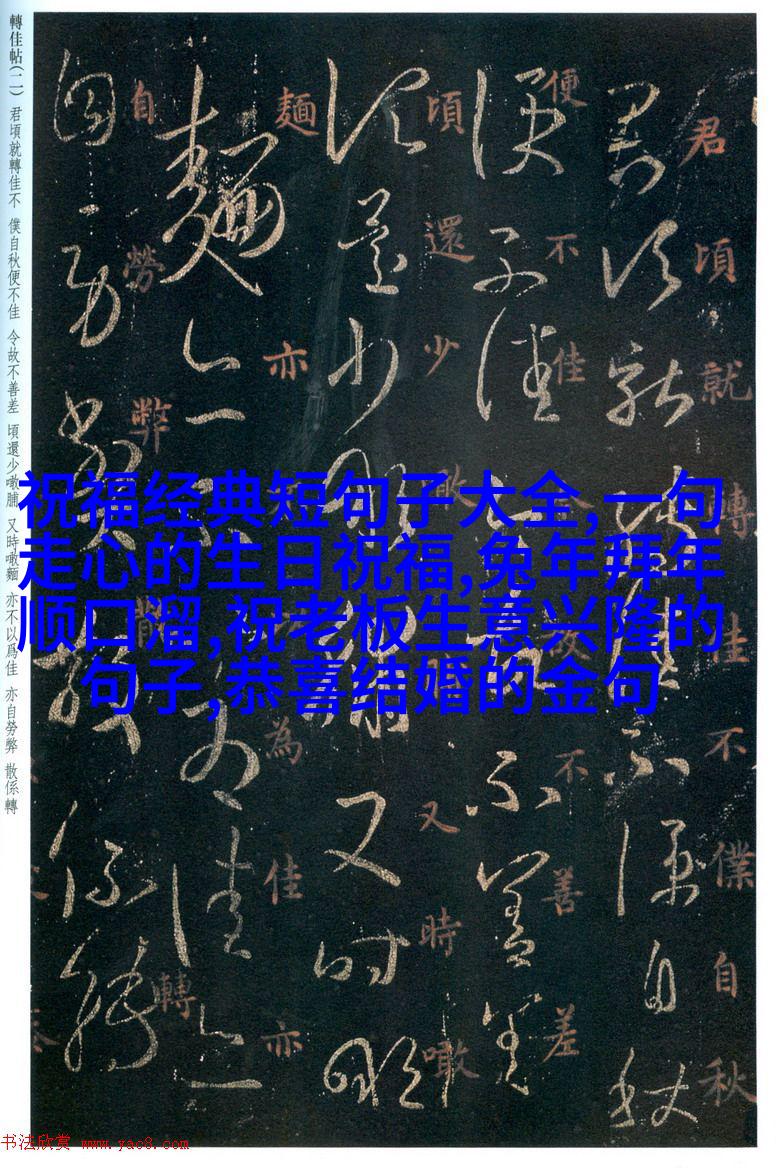 祝福经典短句子大全,一句
走心的生日祝福,兔年拜年
顺口溜,祝老板生意兴隆的
句子,恭喜结婚的金句
君頃就轉佳不僕自秋
便不佳今故不善差
頃還少噉脯又時噉
麵亦不以為佳亦
自勞弊散係轉
轉佳帖(二) 君頃就轉佳不 僕自秋便不佳 令故不善差 頃還少噉脯 又時噉麵 亦不以爲佳 亦自勞弊 散係轉
书法欣赏 www.yac8.com